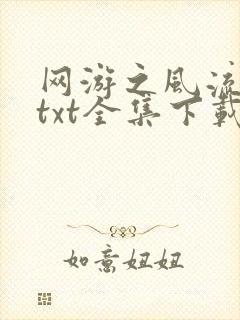 网游之风流
txt全集下载
如意妞妞